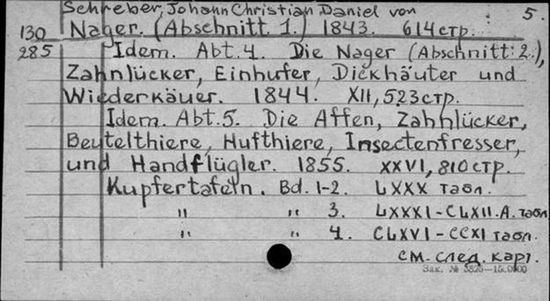 Schreber, Johann Christian Daniel von 5.
130 Nager. (Abschnitt 1.) 1843. 614 стр.
285 Idem. Abt. 4. Die Nager (Abschnitt: 2.),
Zahnlücker, Einhufer, Dickhäuter und
Wiederkäuer. 1844. XII, 523 стр.
Idem. Abt. 5. Die Affen, Zahnlücker,
Beutelthiere, Hufthiere, Insectenfresser,
und Handflügler. 1855. XXVI, 810 стр.
Kupfertafeln. Bd. 1-2. LXXX табл.
" " 3. LXXXI-CLXII.A. табл
" " 4. CLXVI-CCXI табл.
см. след. карт.
Зак. № 5825—15.000